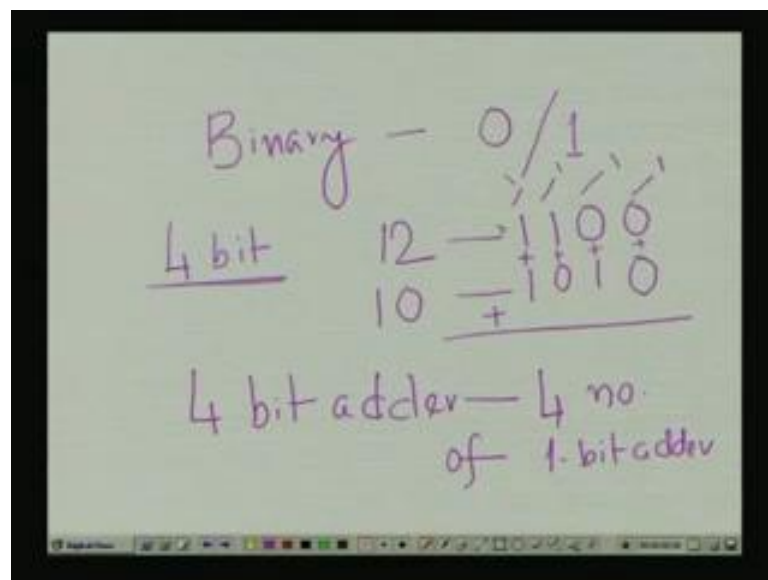 Binary - 0/1
4 bit 12 → 1 1 0 0
+ + + +
10 — 1 0 1 0
+
4 bit adder — 4 no.
of 1-bit adder